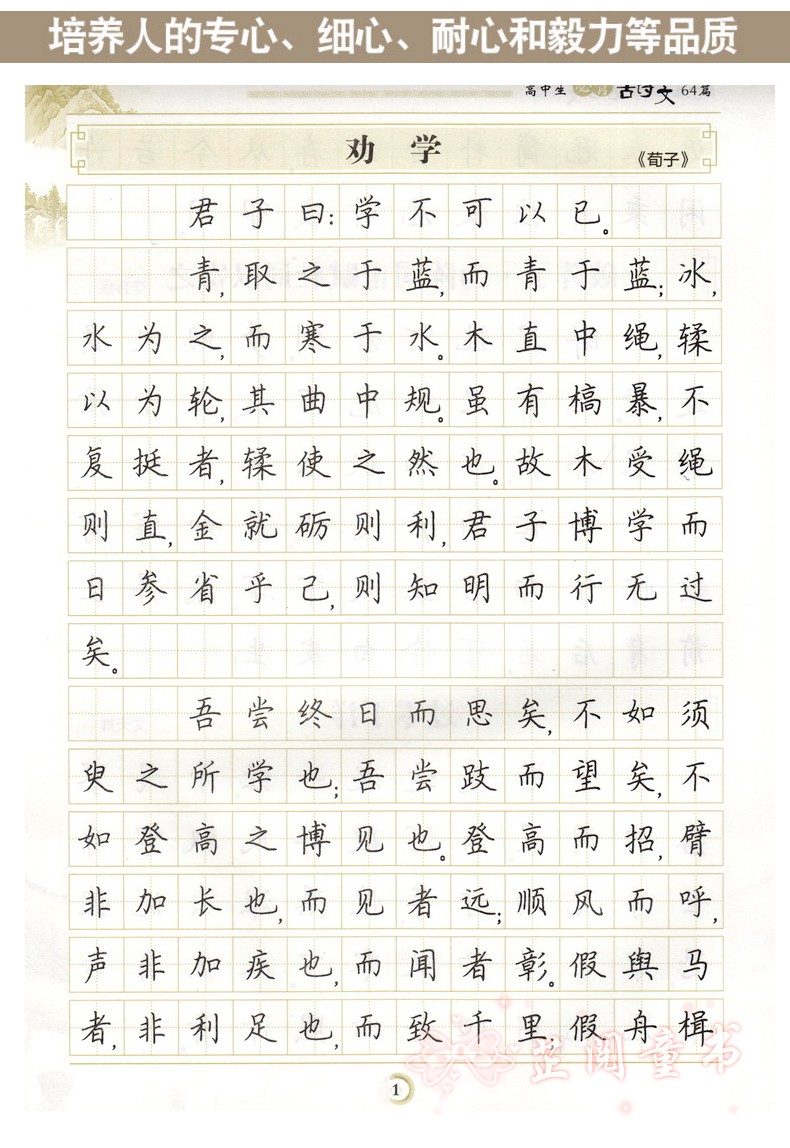 培养人的专心、细心、耐心和毅力等品质
高中生 必背 古诗文 64篇
劝学
《荀子》
君子曰：学不可以已。
青，取之于蓝，而青于蓝；冰，
水为之，而寒于水。木直中绳，𫐓
以为轮，其曲中规。虽有槁暴，不
复挺者，𫐓使之然也。故木受绳
则直，金就砺则利，君子博学而
日参省乎己，则知明而行无过
矣。
吾尝终日而思矣，不如须
臾之所学也；吾尝跂而望矣，不
如登高之博见也。登高而招，臂
非加长也，而见者远；顺风而呼，
声非加疾也，而闻者彰。假舆马
者，非利足也，而致千里；假舟楫
1
蓝阅童书